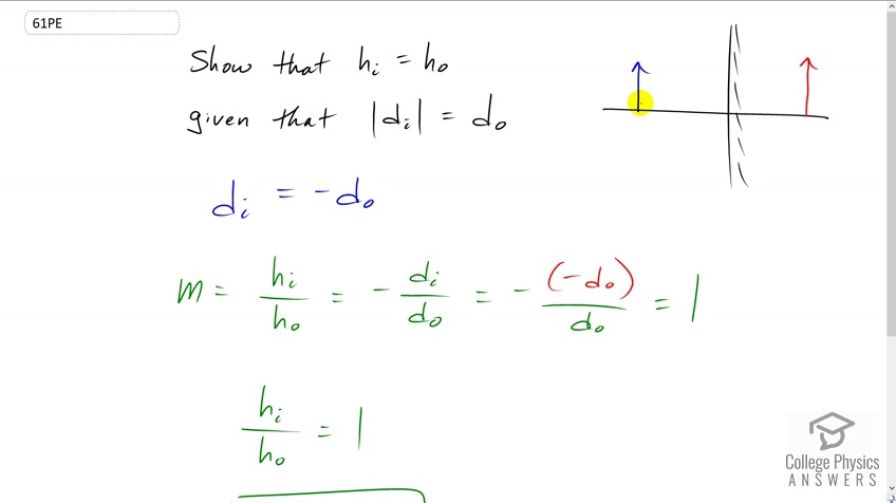 61PE
Show that hᵢ = hₒ
given that |dᵢ| = dₒ
dᵢ = -dₒ
m = hᵢ/hₒ = - dᵢ/dₒ = - (-dₒ)/dₒ = 1
hᵢ/hₒ = 1
College Physics
ANSWERS